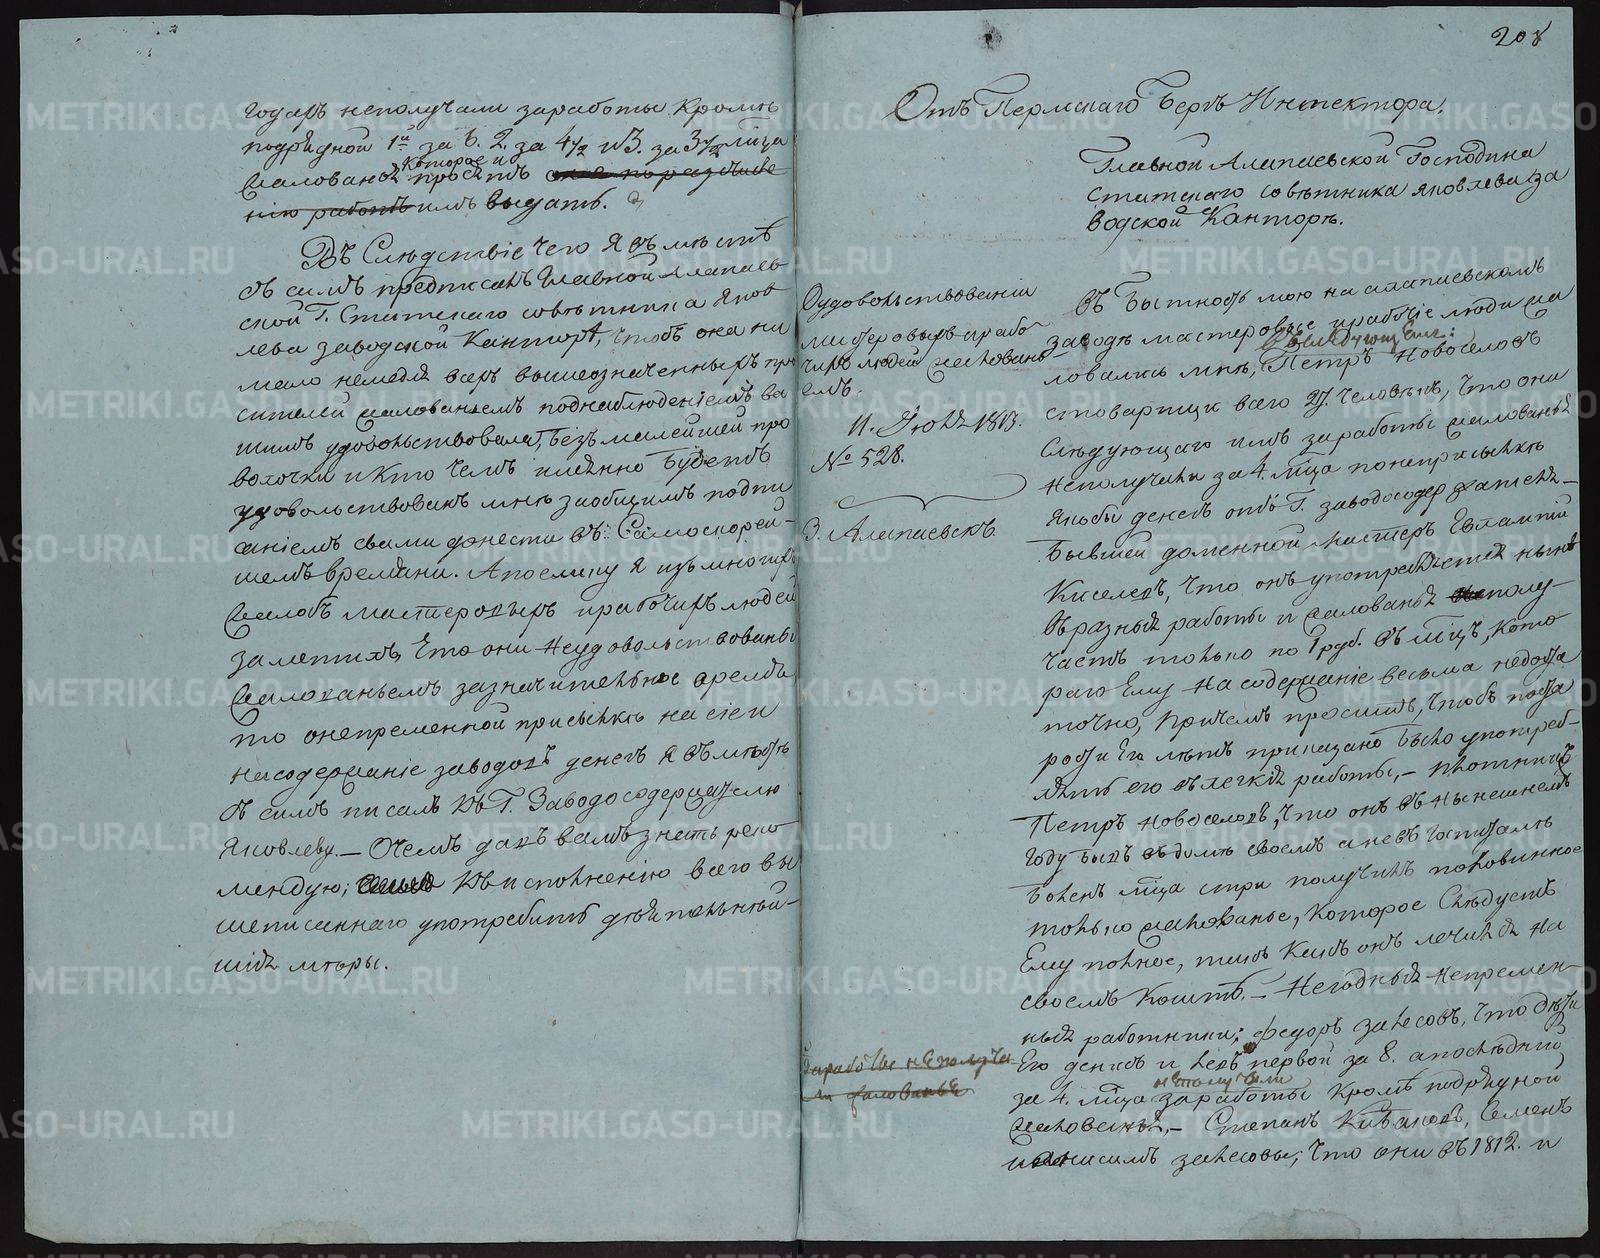 годахъ неполучали заработы кромѣ
подрядной 1й за 6. 2. за 4½ и 3. за 3½ мѣца
жалованья которое и просятъ
имъ выдать.
Въ Слѣдствіе чего я въ мѣстѣ
съ симъ предписалъ Главной Алапаев-
ской Г. Статскаго совѣтника Яков
лева заводской Канторѣ, чтобъ она ни
мало немедля всѣхъ вышеозначенныхъ про
сителей жалованьемъ поднаблюденіемъ ва
шимъ удовольствовала, безъ малейшей про
волочки и кто чемъ имянно будетъ
удовольствованъ мнѣ заобщимъ подпи
саніемъ съвами донести въ Самоскорей-
шемъ времяни. А поелику я изъ многихъ
жалобъ мастеровыхъ и рабочихъ людей
заметилъ, что они неудовольствованы
жалованьемъ зазначительное время
то онепременной присылкѣ на сіе и
насодержаніе заводовъ денегъ я въмѣстѣ
съ симъ писалъ къ Г. Заводосодержателю
Яковлеву. — Очемъ давъ вамъ знать реко
мендую, къ исполненію всего вы
шеписаннаго употребить дѣятельнѣй-
шія мѣры.
208
Отъ Пермскаго Бергъ Инспектора.
Главной Алапаевской Господина
Статскаго совѣтника Яковлева за
водской Канторѣ.
Оудовольствованіи
мастеровыхъ и рабо
чихъ людей жаловань
емъ.
11. Іюля 1813.
№ 528.
З. Алапаевскъ.
Въ бытность мою на алапаевскомъ
заводѣ мастеровые и рабочіе люди жа
ловались мнѣ, Петръ Новоселовъ
стоварищи всего 27. человѣкъ, что они
Слѣдующаго имъ заработы жалованья
неполучили за 4. мѣца понеприсылкѣ
якобы денегъ отъ Г. заводосодержателя —
бывшей доменной мастеръ Евлампій
Киселевъ, что онъ употребляется нынѣ
въразныя работы и жалованья полу-
чаетъ только по 1 руб. въ мѣцъ, кото
раго Ему на содержаніе весьма недоста
точно, причемъ проситъ, чтобъ поста
рости Его лѣтъ приказано было употреб-
лять его въ легкія работы, — плотникъ
Петръ Новоселовъ, что онъ въ нынешнемъ
году былъ въ домѣ своемъ а не въ госпиталѣ
боленъ мѣца стри получилъ половинное
только жалованье, которое Слѣдуетъ
Ему полное, такъ какъ онъ лечился на
своемъ коштѣ. — Негодныя непремен-
ныя работники; Федоръ Залесовъ, что дѣти
Его денисъ и первой за 8. апослѣдній
неполучали
за 4. мѣца заработы кромѣ подрядной
жалованья, — Степанъ Семенъ
Залесовы; что они въ 1812. и
заработы неполуча
ли жалованья